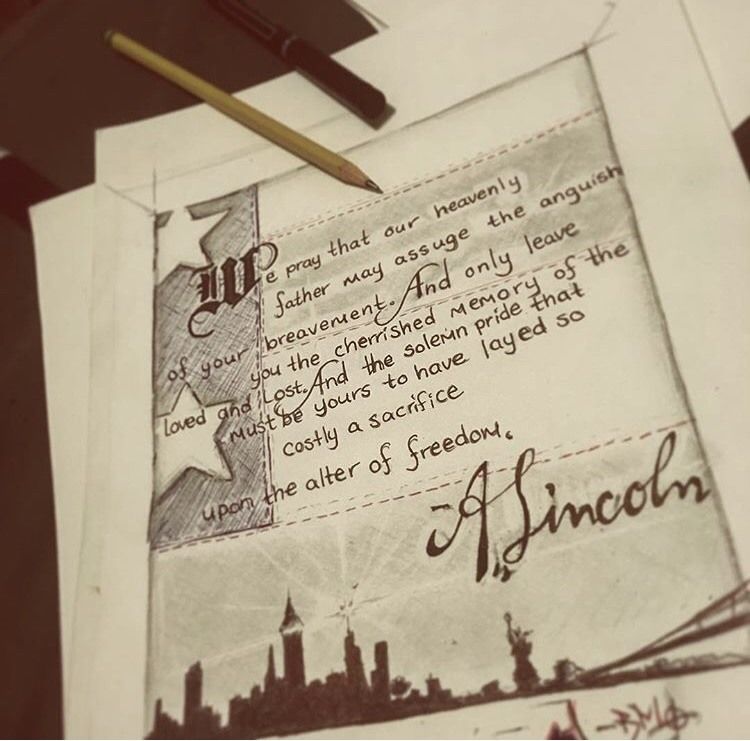 We pray that our heavenly
father may assuge the anguish
of your breavement. And only leave
you the cherrished memory of the
loved and Lost. And the solemn pride that
must be yours to have layed so
costly a sacrifice
upon the alter of freedom.
A Lincoln